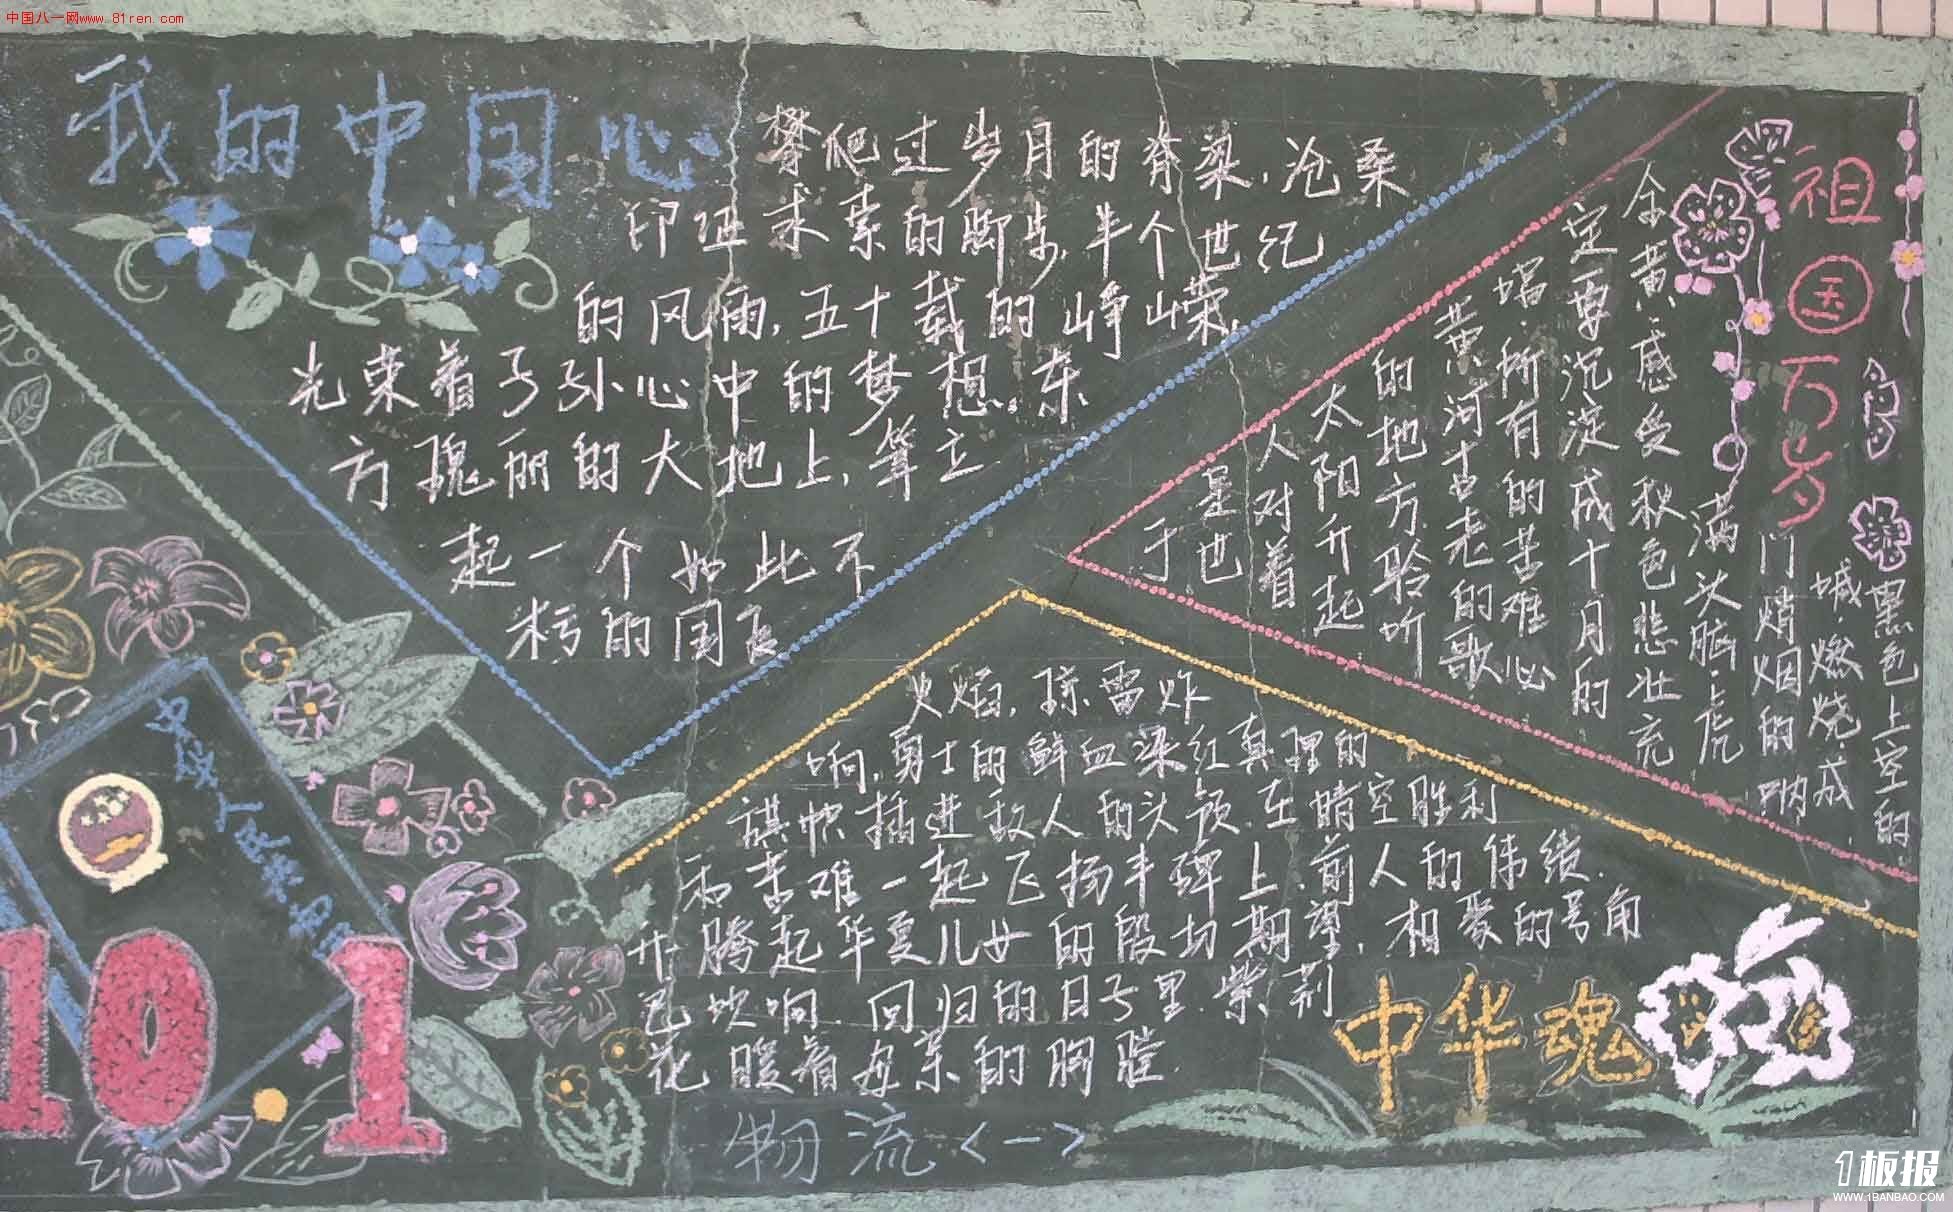 中国八一网www.81ren.com
我的中国心
攀爬过岁月的脊梁,沧桑
印证求索的脚步,半个世纪
的风雨,五十载的峥嵘,
光荣着子孙心中的梦想,东
方瑰丽的大地上,耸立
起一个如此不
朽的国
祖国万岁
黑色上空的
碱,燃烧,成
门硝烟的呐
满头脑,虎
金黄,感受秋色悲壮充
定要沉淀成十月的
塌,所有的苦难心
黄河古老的歌
的地方聆听
太阳升起
人对着
是世
于
火焰,惊雷炸
响,勇士的鲜血染红真理的
旗帜插进敌人的头颅,在晴空胜利
和苦难一起飞扬丰碑上,前人的伟绩,
升腾起华夏儿女的殷切期望,相聚的号角
已吹响,回归的日子里,紫荆
花暖着母亲的胸膛.
中华魂
物流<一>
中华人民共和国
101
1板报
WWW.1BANBAO.COM